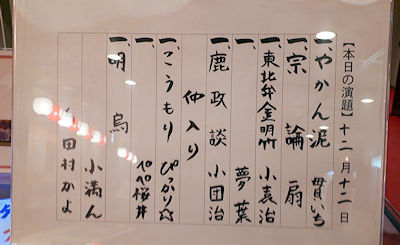 【本日の演題】十二月十二日
一、やかん泥 貫いち
一、宗論 扇
一、東北弁金明竹 小袁治
一、夢葉
一、鹿政談 小団治
仲入り
一、こうもり ぴっかり☆
一、ペペ桜井
一、明烏 小満ん
田村かよ